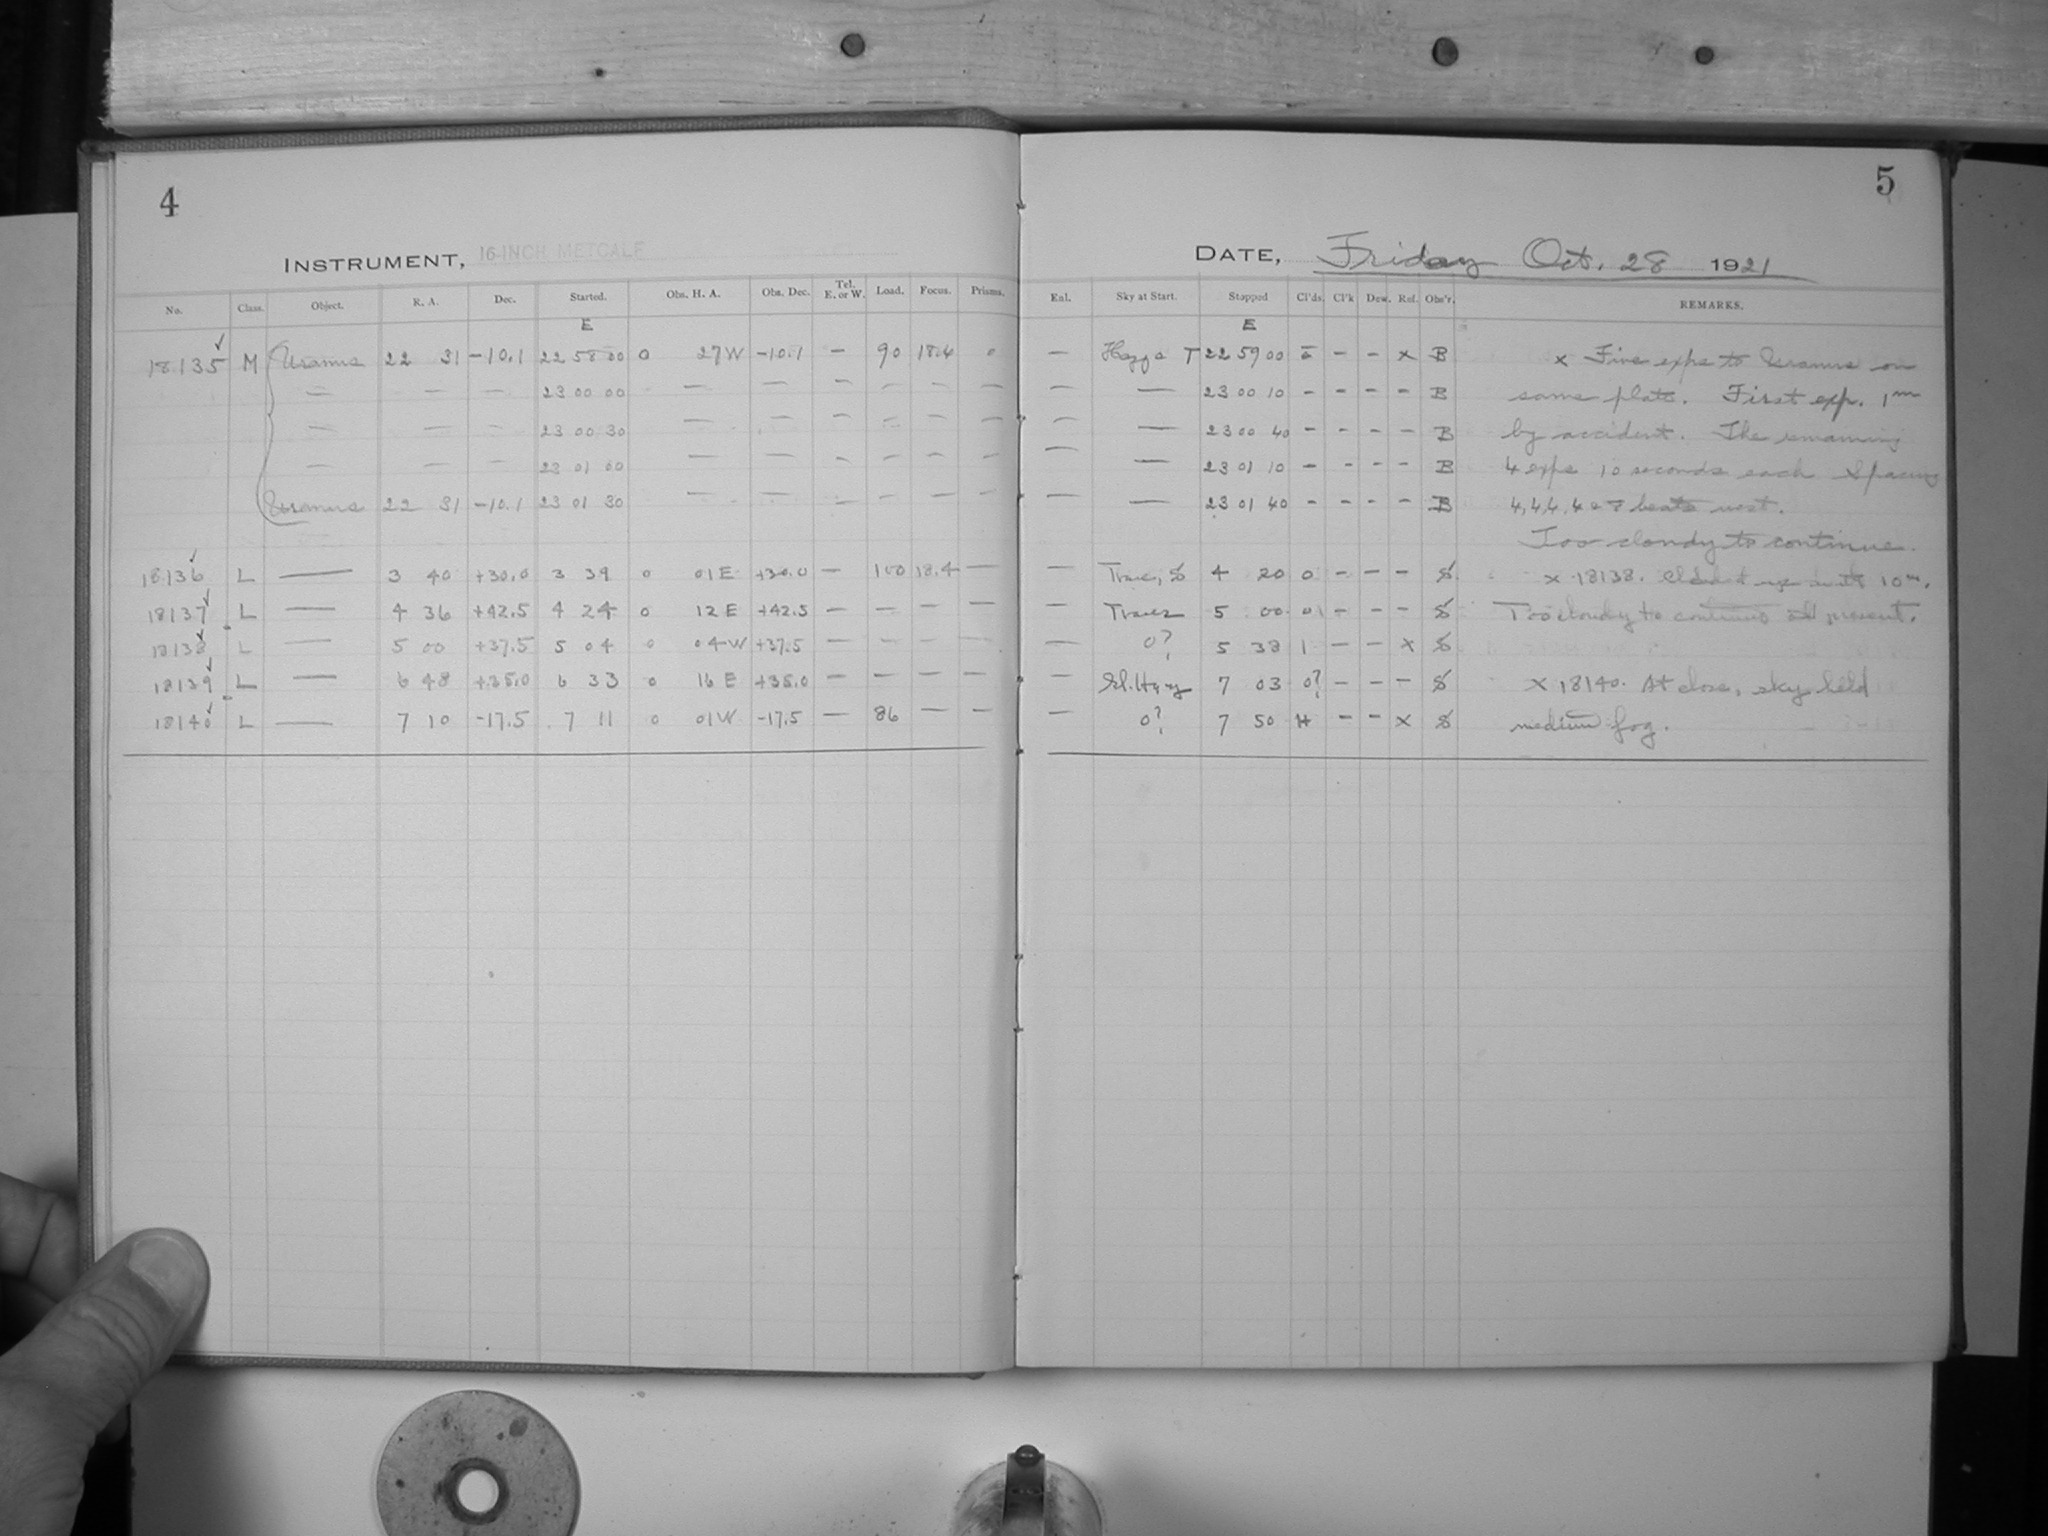 4
INSTRUMENT, 16-INCH METCALF
No. Class. Object. R. A. Dec. Started. Obs. H. A. Obs. Dec. Tel. E. or W. Load. Focus. Prisms.
E
18135 ✓ M Uranus 22 31 -10.1 22 58 00 0 27W -10.1 — 90 18.4 0
— — — 23 00 00 — — — — — —
— — — 23 00 30 — — — — — —
— — — 23 01 00 — — — — — —
Uranus 22 31 -10.1 23 01 30 — — — — — —
18136 ✓ L — 3 40 +30.0 3 39 0 01E +30.0 — 100 18.4 —
18137 ✓ L — 4 36 +42.5 4 24 0 12E +42.5 — — — —
18138 ✓ L — 5 00 +37.5 5 04 0 04W +37.5 — — — —
18139 ✓ L — 6 48 +35.0 6 33 0 16E +35.0 — — — —
18140 ✓ L — 7 10 -17.5 7 11 0 01W -17.5 — 86 — —
5
DATE, Friday Oct. 28 1921
Enl. Sky at Start. Stopped Cl'ds. Cl'k Dew. Ref. Obs'r. REMARKS.
E
— T 22 59 00 — — x B x Five exps to Uranus on
— — 23 00 10 — — — — B same plate. First exp. 1m
— — 23 00 40 — — — — B by accident. The remaining
— — 23 01 10 — — — — B 4 exps 10 seconds each Spacing
— — 23 01 40 — — — — B 4,4,4,4 beats west.
Too cloudy to continue.
— 4 20 0 — — — x 18138. Clouded up 10m.
— Traces 5 00 0 — — — Too cloudy to continue at present.
— 0? 5 38 1 — — x
— 7 03 0? — — — x 18140. At close, sky held
— 0? 7 50 H — — x medium fog.